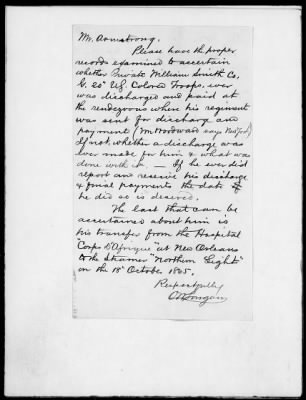 Mr. Armstrong.
Please have the proper
records examined to ascertain
whether Private William Smith Co.
G. 20" U.S. Colored Troops, ever
was discharged and paid at
the rendezvous where his regiment
was sent for discharge and
payment (Mr Woodward says New York)
If not, whether a discharge was
ever made for him & what was
done with it — If he ever did
report and receive his discharge
& final payments the date
he did so is desired.
The last that can be
ascertained about him is
his transfer from the Hospital
"Corps D'Afrique" at New Orleans
to the Steamer "Northern Light"
on the 18" October 1865.
Respectfully